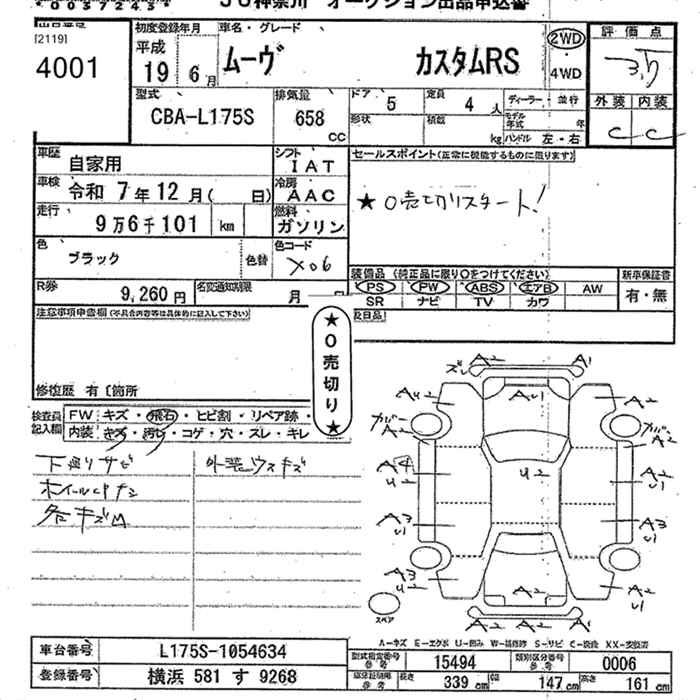 JU神奈川 オークション出品申込書
[2119]
4001
初度登録年月
平成
19 年 6 月
車名・グレード
ムーヴ カスタムRS
2WD
・
4WD
評価点
3.5
外装 内装
C C
型式
CBA-L175S
排気量
658 CC
ドア 5
定員 4 人
ディーラー・並行
形状
積載 kg
モデル年式 年
ハンドル 左・右
車歴 自家用
シフト IAT
車検 令和 7 年 12 月( 日)
冷房 AAC
走行 9万6千101 km
燃料 ガソリン
色 ブラック 色替
色コード X06
R券 9,260 円
名変通知期限 月
セールスポイント(正常に機能するものに限ります)
★ 0売切りスタート!
装備品 (純正品に限り○をつけてください)
PS PW ABS エアB AW
SR ナビ TV カワ
新車保証書
有・無
注意事項申告欄(不具合内容等は具体的に記入して下さい)
修復歴 有〔箇所
★0売切り★
検査員記入欄
FW キズ・飛石・ヒビ割・リペア跡・
内装 キズ・汚レ・コゲ・穴・スレ・キレ
下廻りサビ
外装ウスキズ
各キズM
A2 A1
ズレ
AU1
AU2 A2
ガバ A2
ガバ A2
A4 U2
U2
A2 U1
A3 U1
A3 U1
A3 U2
A2 U1
A2
A2 A2 A1
スペア
A-キズ E-エクボ U-凹み W-補修跡 S-サビ C-腐食 XX-交換済
車台番号 L175S-1054634
登録番号 横浜 581 す 9268
型式指定番号 参考 15494
類別区分番号 参考 0006
車庫証明用 参考 長さ 339 cm 幅 147 cm 高さ 161 cm